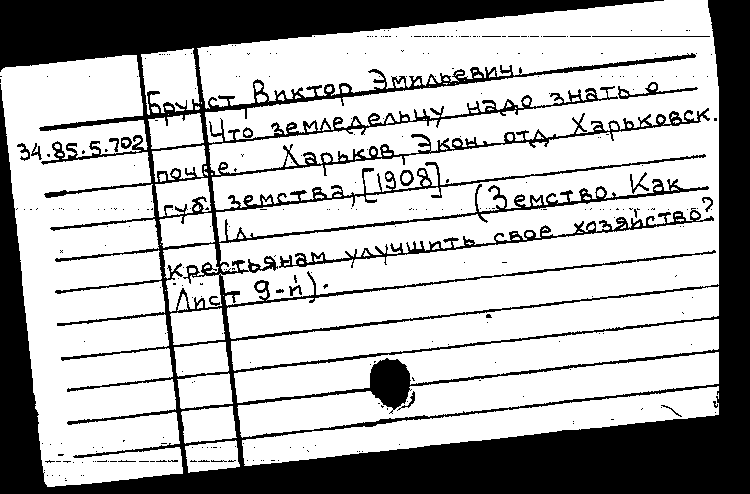 Брунст, Виктор Эмильевич.
34.85.5.702 Что земледельцу надо знать о
почве. Харьков, Экон. отд. Харьковск.
губ. земства, [1908].
1л. (Земство. Как
крестьянам улучшить свое хозяйство?
Лист 9-й).